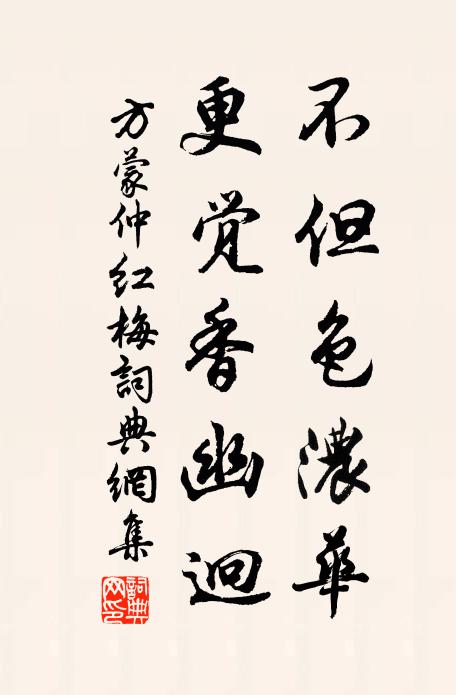 不但色濃華
更覺香幽迥
方蒙仲红梅詞典網集
詞典网印